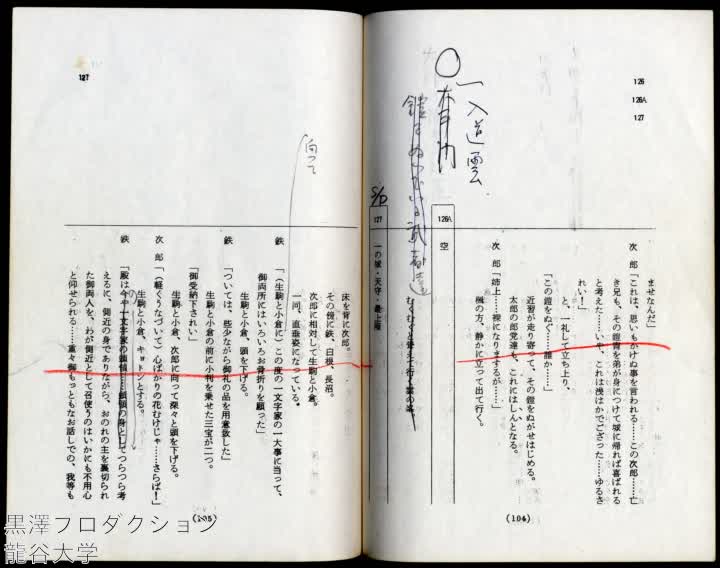 126
126A
127
ませなんだ」
次 郎「これは、思いもかけぬ事を言われる……この次郎……亡
き兄も、その鎧胄を弟が身につけて城に帰れば喜ばれる
と考えた……いや、これは浅はかでござった……ゆるさ
れい！」
と、一礼して立ち上り、
「この鎧をぬぐ……誰か……」
近習が走り寄って、その鎧をぬがせはじめる。
太郎の郎党達も、これにはしんとなる。
次 郎「姉上……裸になりまするが……」
楓の方、静かに立って出て行く。
(104)
一入道雲
126A
空
むくむくと
127
S/D
127
一の城・天守・最上層
向って
床を背に次郎。
その傍に鉄、白根、長沼。
次郎に相対して生駒と小倉。
一同、直垂姿になっている。
鉄 「（生駒と小倉に）この度の一文字家の一大事に当って、
御両所にはいろいろお骨折りを願った」
生駒と小倉、頭を下げる。
鉄 「ついては、些少ながら御礼の品を用意致した」
生駒と小倉の前に小判を乗せた三宝が二つ。
「御受納下されい」
生駒と小倉、次郎に向って深々と頭を下げる。
次 郎「（軽くうなづいて）心ばかりの花むけじゃ……さらば！」
生駒と小倉、キョトンとする。
鉄 「殿は今や一文字家の
の身としてつらつら考
えるに、側近の身でありながら、おのれの主を裏切られ
た御両人を、わが側近として召使うのはいかにも不用心
と仰せられる……重々御もっともなお話しでの、我等も
(105)
黒澤プロダクション
龍谷大学